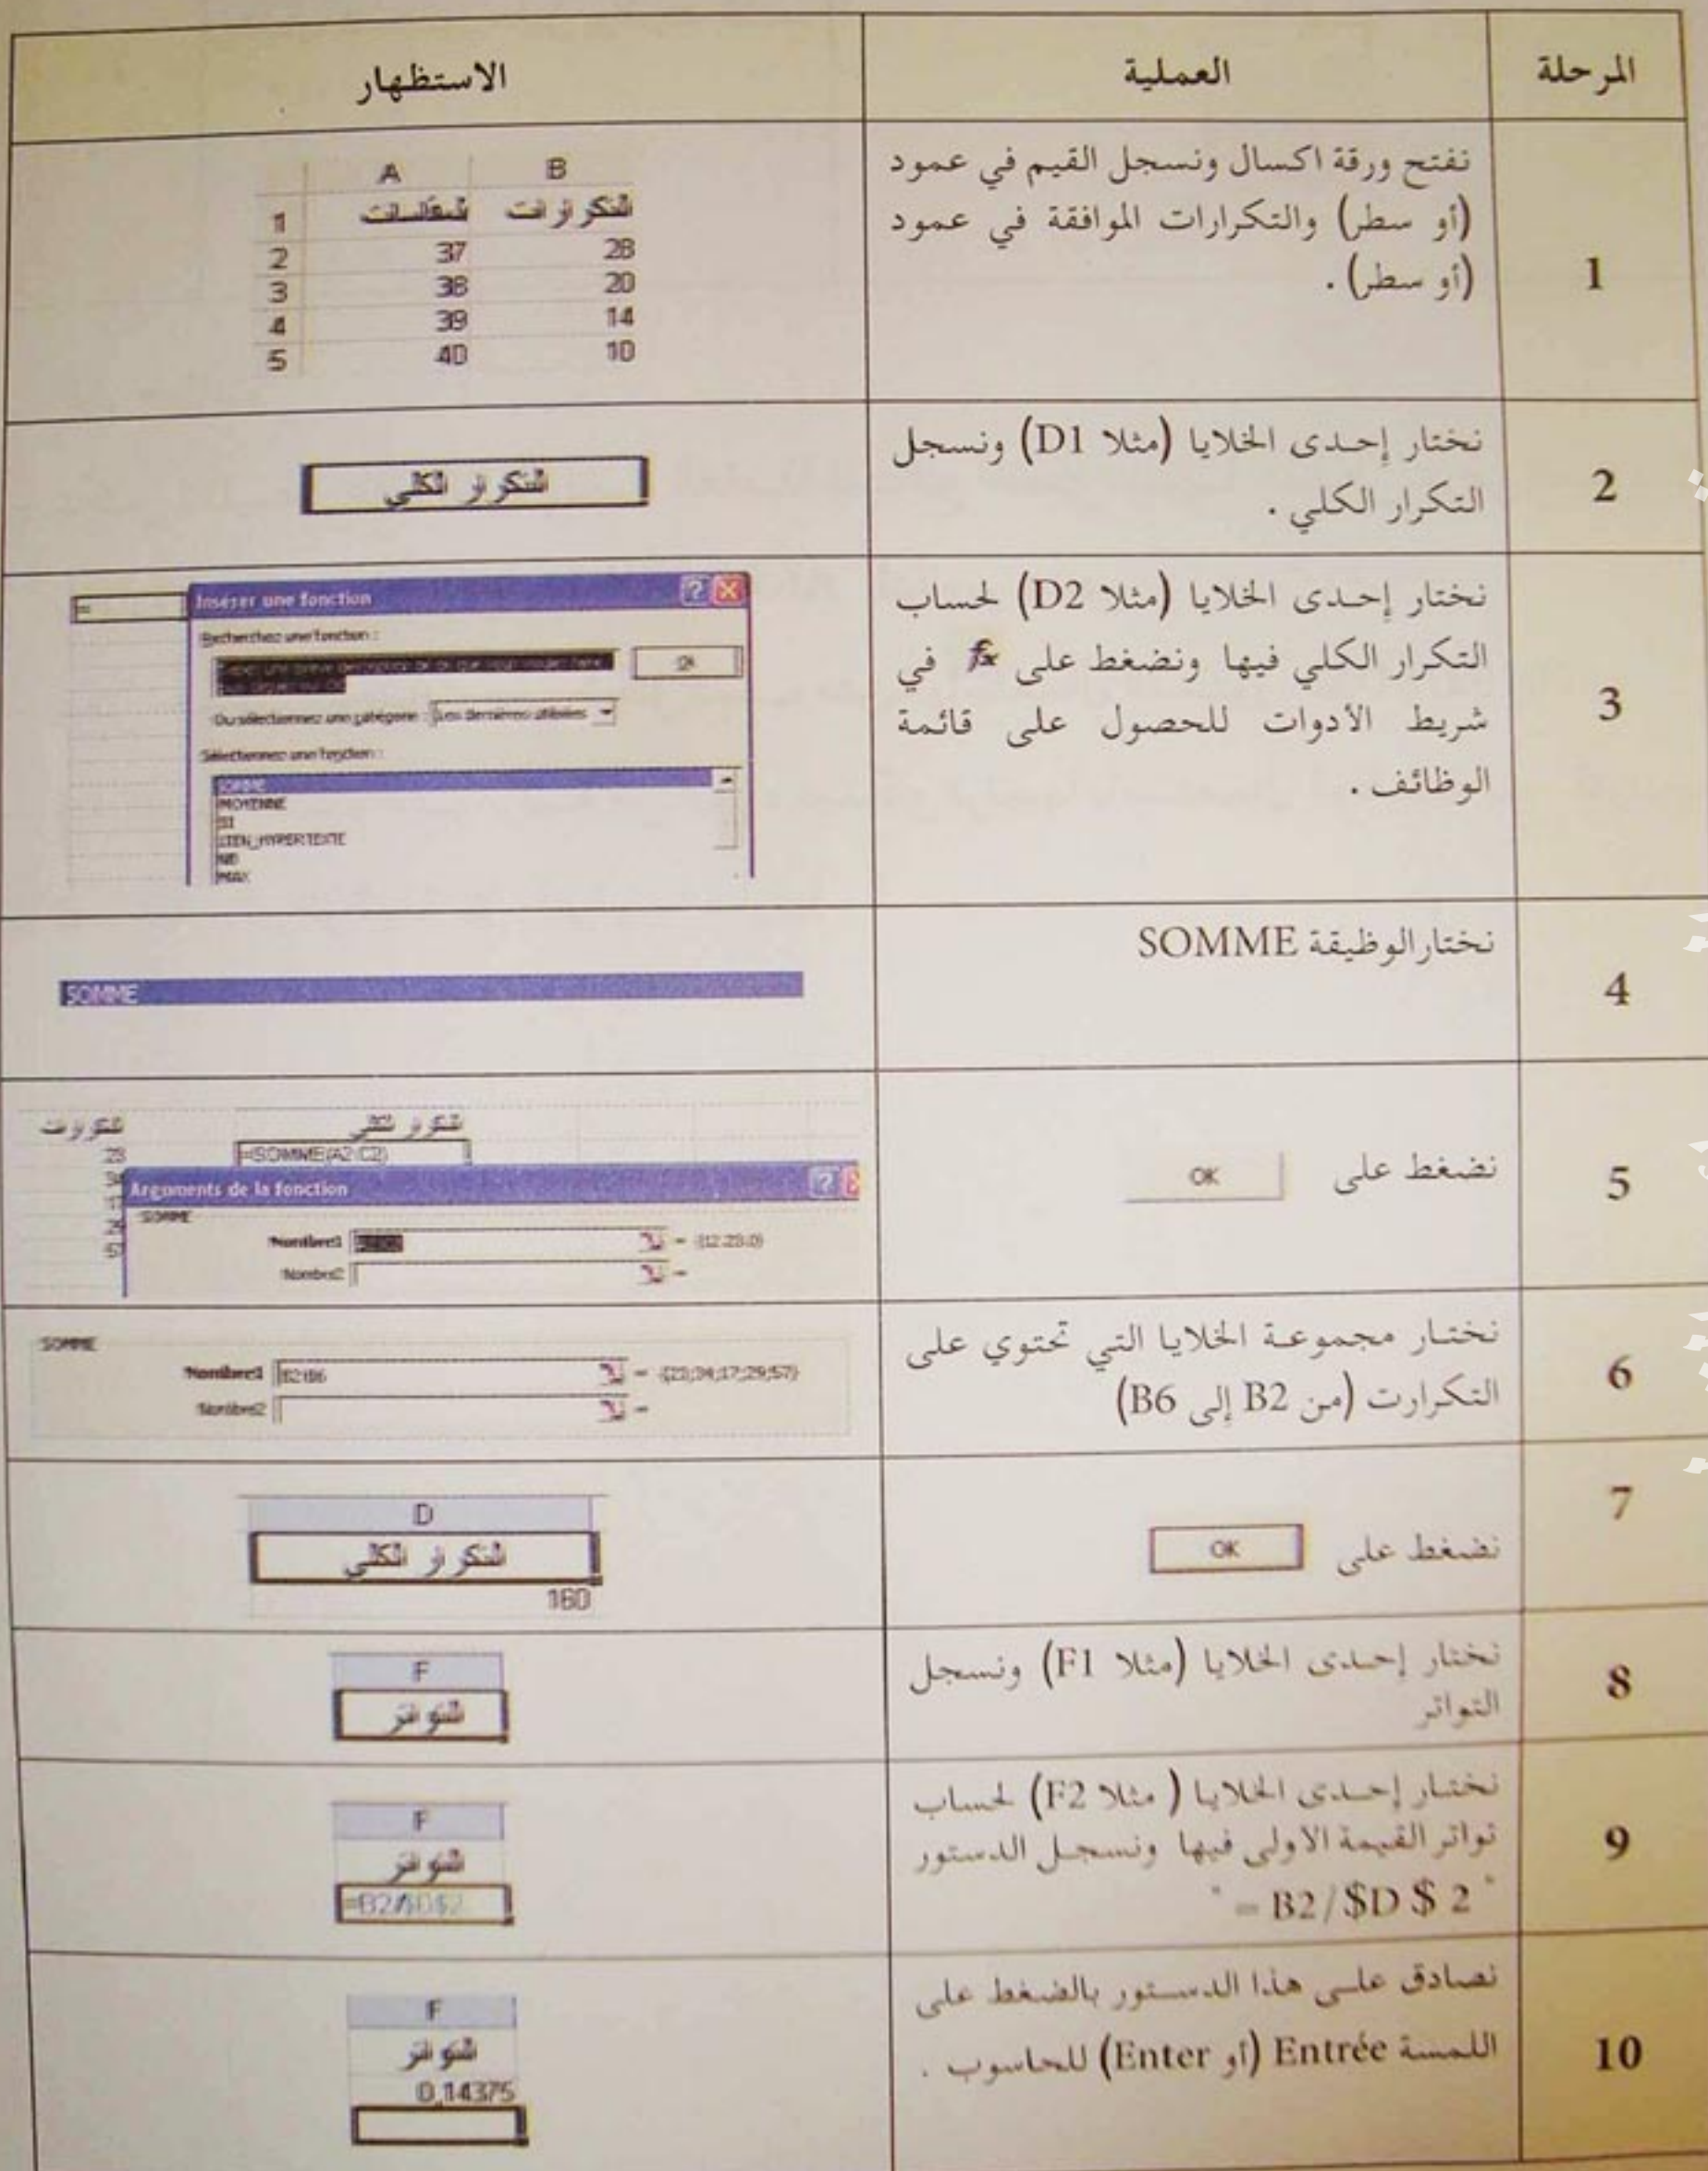 المرحلة
العملية
الاستظهار
1
نفتح ورقة اكسال ونسجل القيم في عمود
(أو سطر) والتكرارات الموافقة في عمود
(أو سطر) .
A B
1 المقاسات التكرارات
2 37 28
3 38 20
4 39 14
5 40 10
2
نختار إحدى الخلايا (مثلا D1) ونسجل
التكرار الكلي .
التكرار الكلي
3
نختار إحدى الخلايا (مثلا D2) لحساب
التكرار الكلي فيها ونضغط على fx في
شريط الأدوات للحصول على قائمة
الوظائف .
=
Insérer une fonction
Recherchez une fonction :
OK
Ou sélectionnez une catégorie : Les dernières utilisées
Sélectionnez une fonction :
SOMME
MOYENNE
SI
LIEN_HYPERTEXTE
NB
MAX
4
نختارالوظيقة SOMME
SOMME
5
نضغط على OK
التكرارات
التكرار الكلي
23
=SOMME(A2:C2)
Arguments de la fonction
SOMME
Nombre1 = {12.23.0}
Nombre2 =
6
نختار مجموعة الخلايا التي تحتوي على
التكرارت (من B2 إلى B6)
SOMME
Nombre1 B2:B6 = {23;34;17;29;57}
Nombre2 =
7
نضغط على OK
D
التكرار الكلي
160
8
نختار إحدى الخلايا (مثلا F1) ونسجل
التواتر
F
التواتر
9
نختار إحدى الخلايا ( مثلا F2) لحساب
تواتر القيمة الاولى فيها ونسجل الدستور
" = B2/$D $ 2 "
F
التواتر
=B2/$D$2
10
نصادق على هذا الدستور بالضغط على
اللمسة Entrée (أو Enter) للحاسوب .
F
التواتر
0,14375